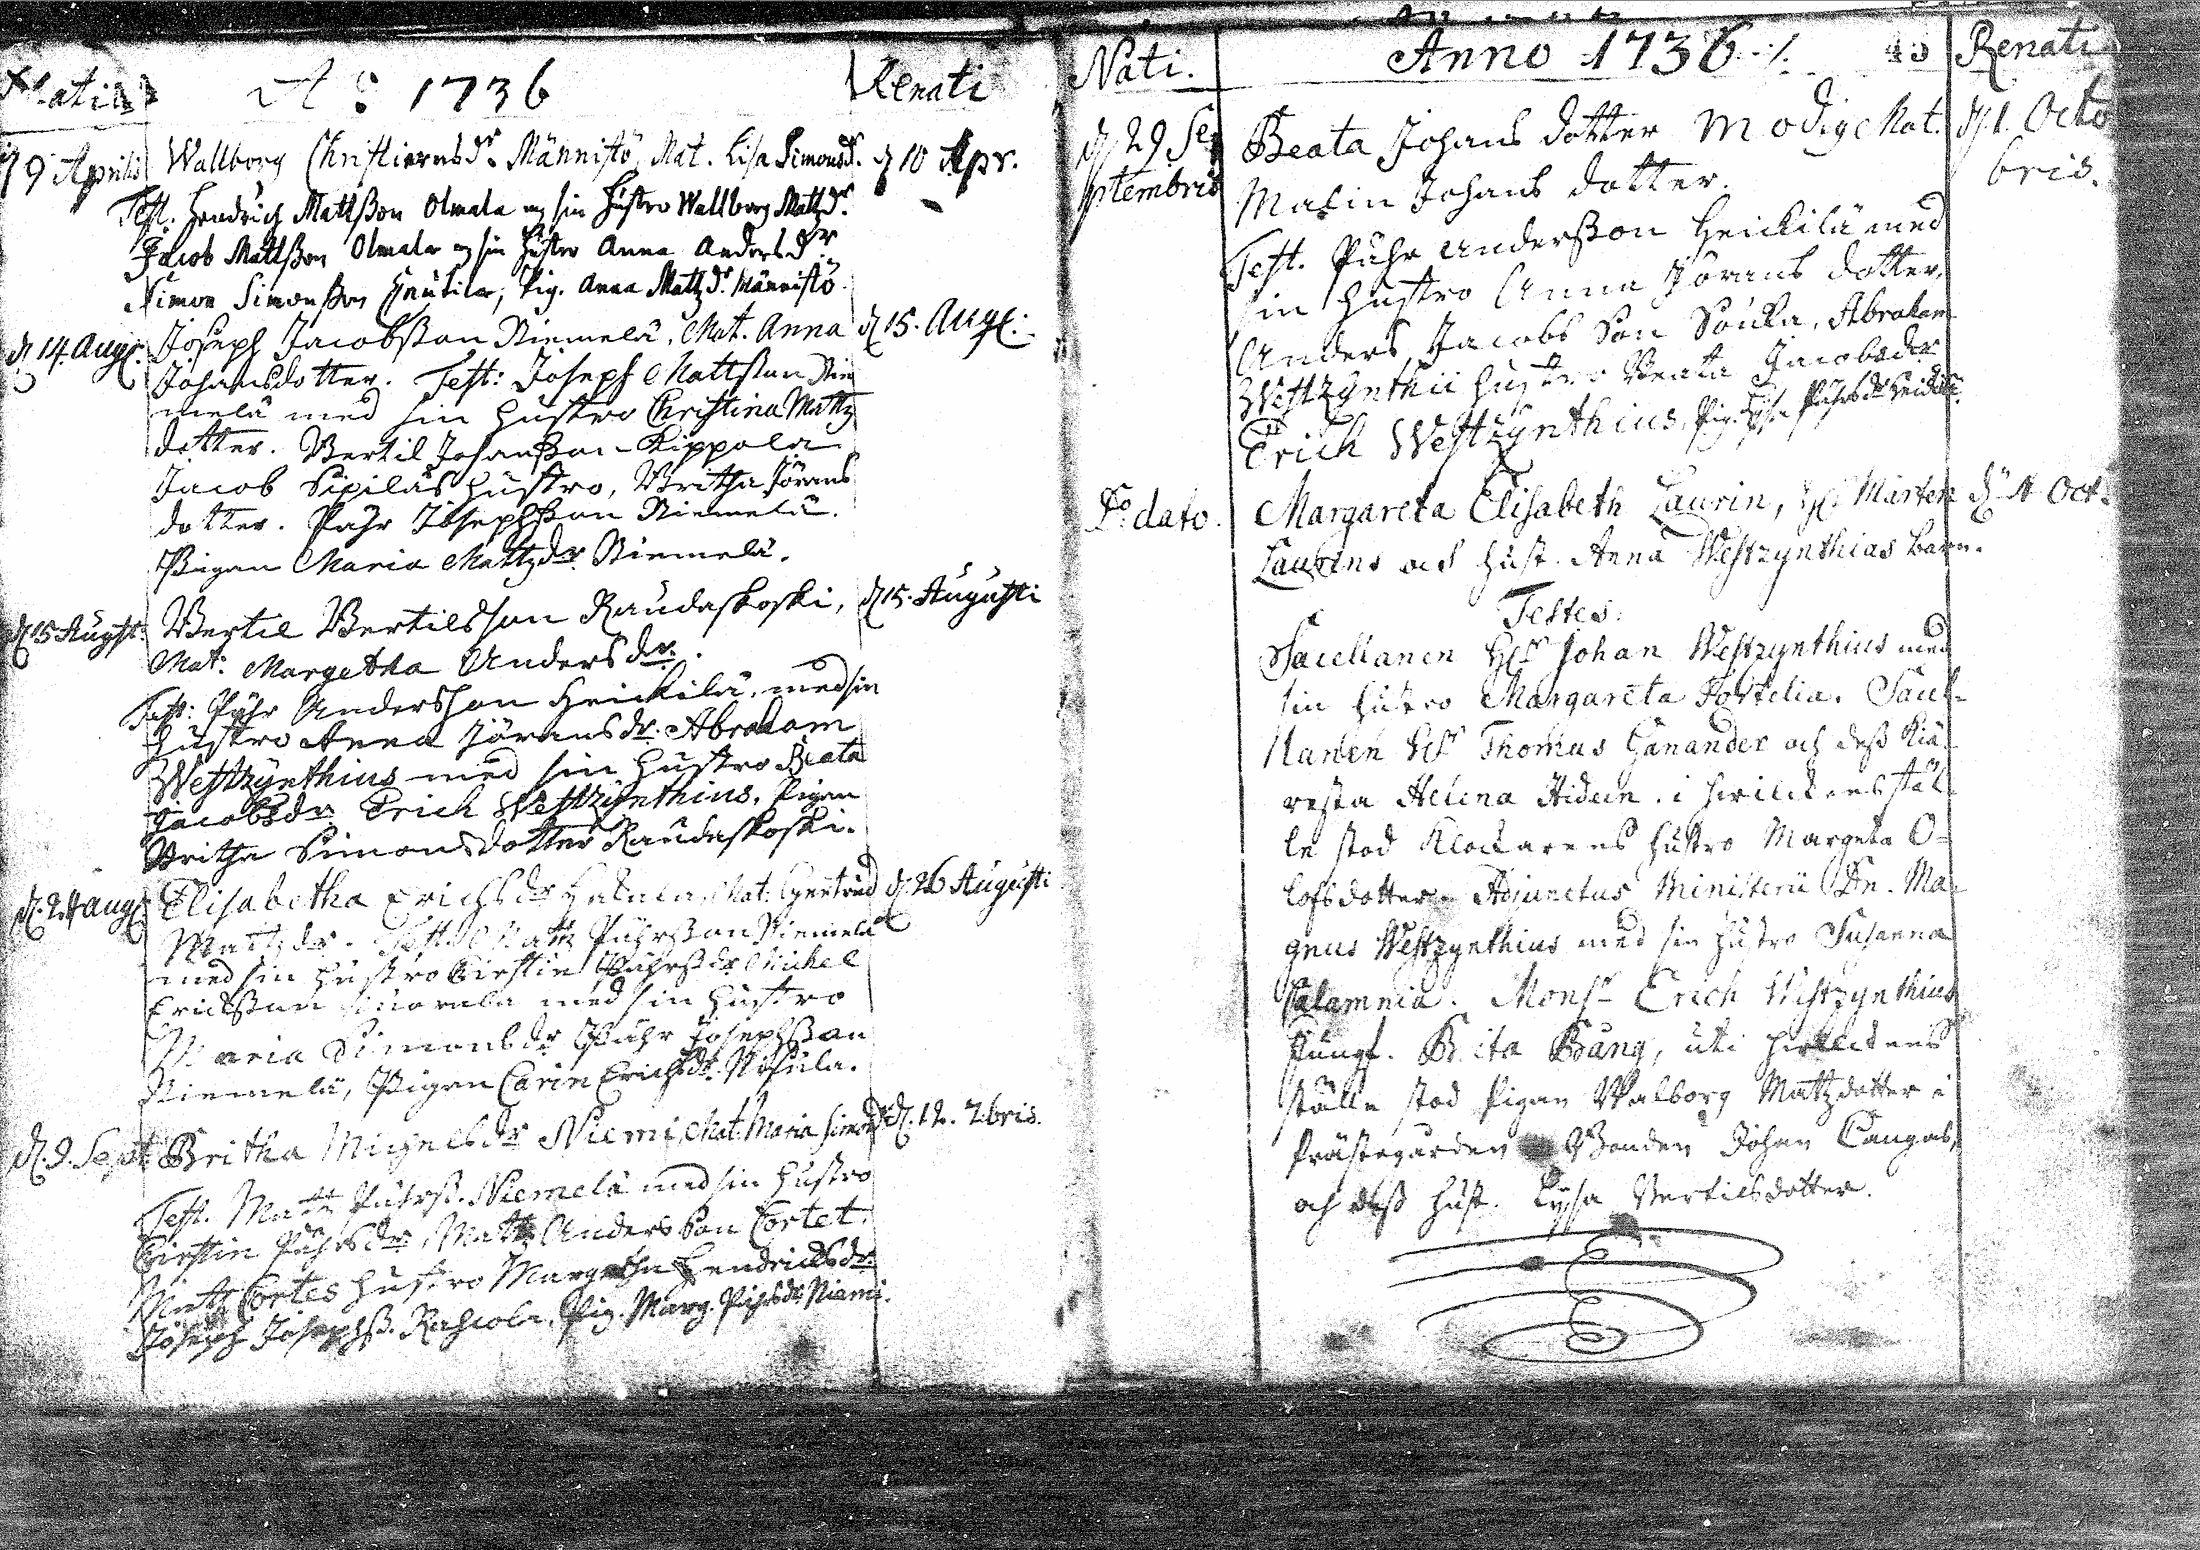 Nati A:o 1736 Renati
d 9 Aprilis Wallborg Christiernsdr. Männistö, Mat. Lisa Simonsd. d 10 Apr.
Test. Hendrich Mattßon Olmala og sin hustro Wallborg Mattzdr.
Jacob Mattßon Olmala og sin hustro Anna Andersdr.
Simon Simonßon, Pig. Anna Mattzdr. Männistö
d 14. Aug. Joseph Jacobsson Niemelä, Mat. Anna d 15. Aug.
Johansdotter. Test: Joseph Mattsson Nie
melä med sin hustro Christina Mattz
dotter. Bertil Johanßon Kippola
Jacob Sipiläs hustro, Britha Jörans
dotter. Pähr Josephsson Niemelä.
Pigan Maria Mattzdr Niemelä.
d 15 August: Bertil Bertilsson Raudaskoski, d 15. Augusti
Mat: Margetha Andersdr.
Test: Pähr Andersson Heickilä, med sin
hustro Anna Jöransdr. Abraham
Westzynthius med sin hustro Beata
Jacobsdr Erich Westzynthius. Pigan
Britha Simonsdotter Raudaskoski.
d. 24 Aug. Elisabetha Erichsdr Mat: Gertrud d. 26 Augusti
Mattzdr. Test: Mattz Pährßon Niemelä
med sin hustro Kirstin Pährßdr Michel
Erichßon med sin hustro
Maria Simonsdr Pähr Josephßon
Niemelä, Pigan Carin Erichsdr.
d. 9. Sept Britha Michelsdr Niemi, Mat: Maria Simonsdr d. 12. 7bris.
Test. Matz Pährß. Niemelä med sin hustro
Kirstin Pährsdr, Matts Andersson Cortet.
Matts Cortes hustro Margetha Hendrichsdr
Joseph Josephß. Pig. Marg. Niemi.

Nati. Anno 1736 ./. 45 Renati
d 29 Se Beata Johans dotter Modig Mat. d 1. Octo
ptembris Malin Johans dotter. bris.
Test. Pähr Anderßon Heickilä med
sin hustro Anna Jörans dotter.
Anders Jacobs Son Souka, Abraham
Westzynthii hustro Beata Jacobsdr
Erich Westzynthius, Pig. Lysa Pährsdr Heickilä.
Do. dato. Margareta Elisabeth Laurin, H. Mårten d 4 Oct.
Laurins och hust. Anna Westzynthias barn.
Testes:
Sacellanen Hr Johan Westzynthius med
sin hustro Margareta Forbelia. Sacel-
lanen Hr Thomas Ganander och deß kiä-
resta Helena Hideen. i hwilckens stäl-
le stod Klockarens hustro Margeta O-
lofsdotter. Adjunctus Ministerii Dn. Ma-
gnus Westzynthius med sin hustro Susanna
Calamnia. Monsr Erich Westzynthius
Jungf. Brita Bång, uti hwilckens
ställe stod Pigan Walborg Mattzdotter i
Prästegården Bonden Johan Cangas,
och deß hust. Lysa Bertilsdotter.